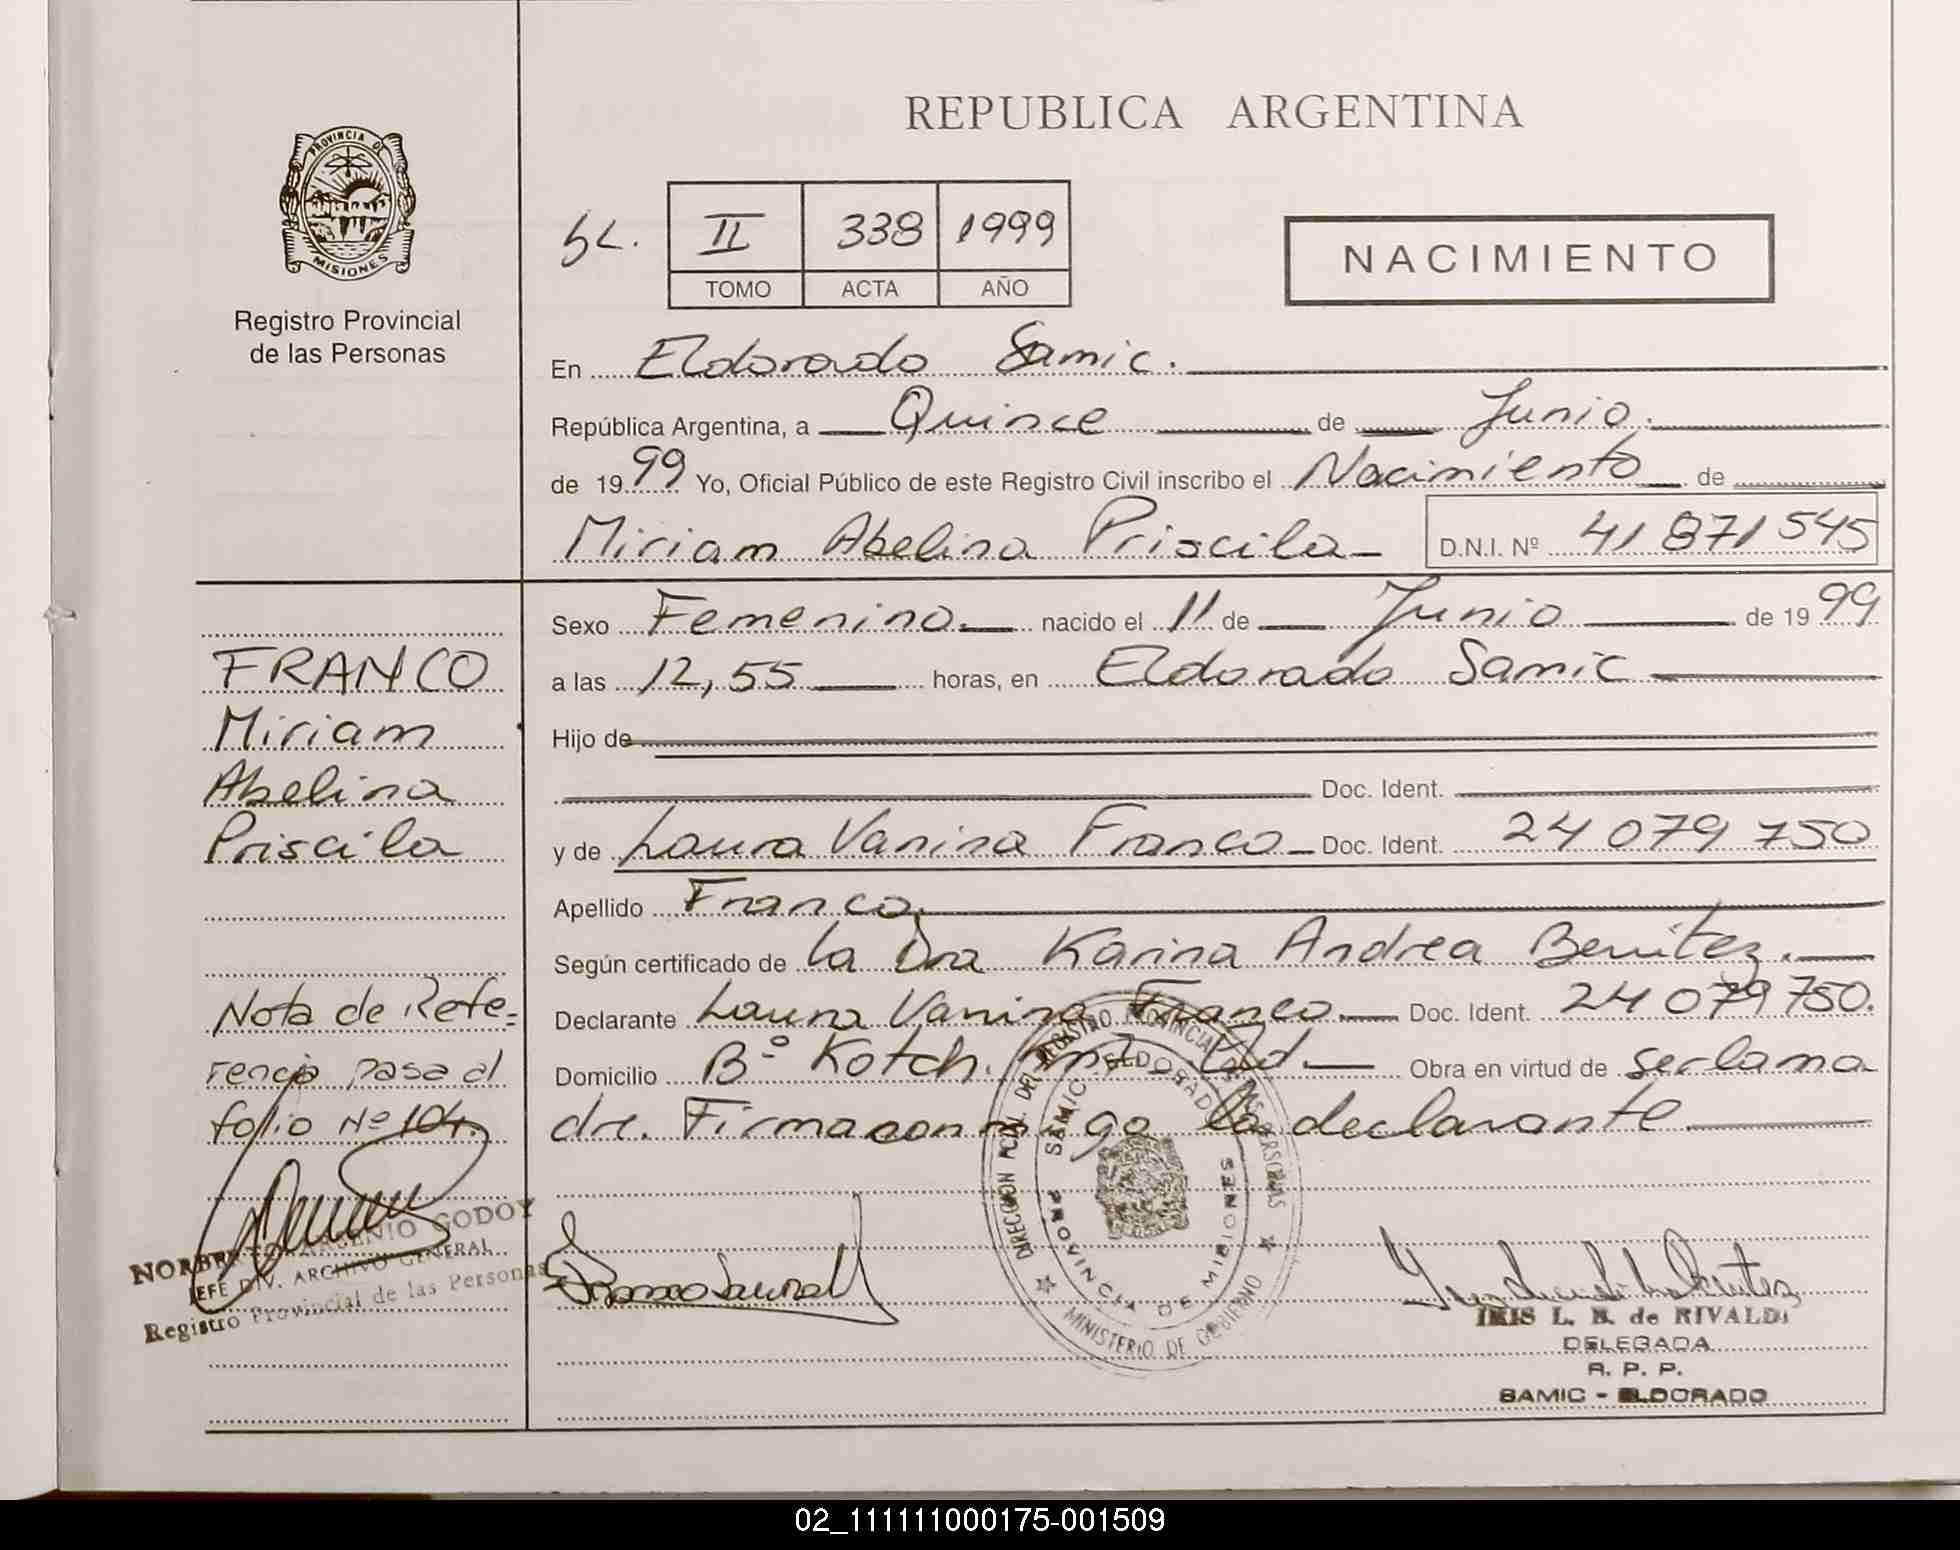 REPUBLICA ARGENTINA
PROVINCIA DE
MISIONES
Registro Provincial
de las Personas
II 338 1999
TOMO ACTA AÑO
NACIMIENTO
En Eldorado Samic.
República Argentina, a Quince de Junio.
de 1999 Yo, Oficial Público de este Registro Civil inscribo el Nacimiento de
Miriam Abelina Priscila D.N.I. Nº 41 871 545
Sexo Femenino. nacido el 11 de Junio de 1999
a las 12,55 horas, en Eldorado Samic
Hijo de
Doc. Ident.
y de Laura Vanina Franco Doc. Ident. 24 079 750
Apellido Franco.
Según certificado de la Dra Karina Andrea Benitez.
Declarante Laura Vanina Franco. Doc. Ident. 24 079 750.
Domicilio Bº Kotch. Obra en virtud de ser la ma
dre. Firma conmigo la declarante
FRANCO
Miriam
Abelina
Priscila
Nota de Refe=
rencia pasa al
folio Nº 104.
NORBERTO ARGENIO GODOY
JEFE DIV. ARCHIVO GENERAL
Registro Provincial de las Personas
DIRECCION PCIAL. DEL REGISTRO PROVINCIAL DE LAS PERSONAS
MINISTERIO DE GOBIERNO
SAMIC ELDORADO
PROVINCIA DE MISIONES
IRIS L. B. de RIVALDI
DELEGADA
R. P. P.
SAMIC - ELDORADO
02_111111000175-001509